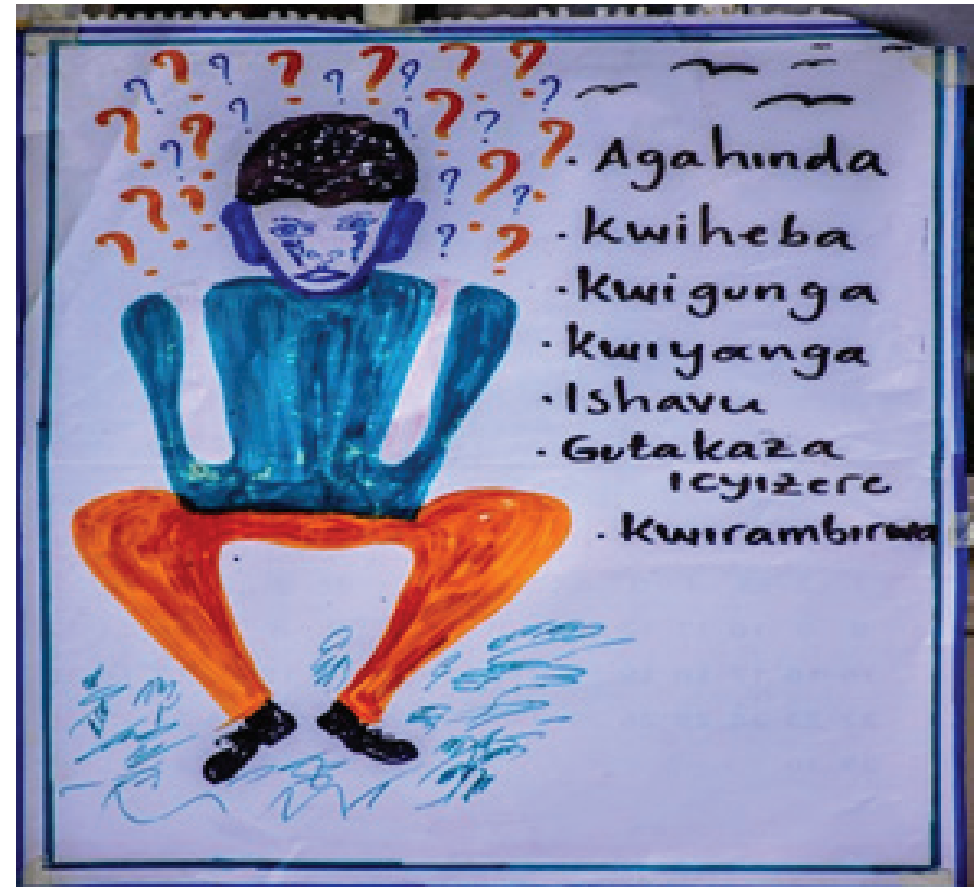 · Agahinda
· Kwiheba
· Kwigunga
· Kwiyanga
· Ishavu
· Gutakaza
icyizere
· Kwirambirwa